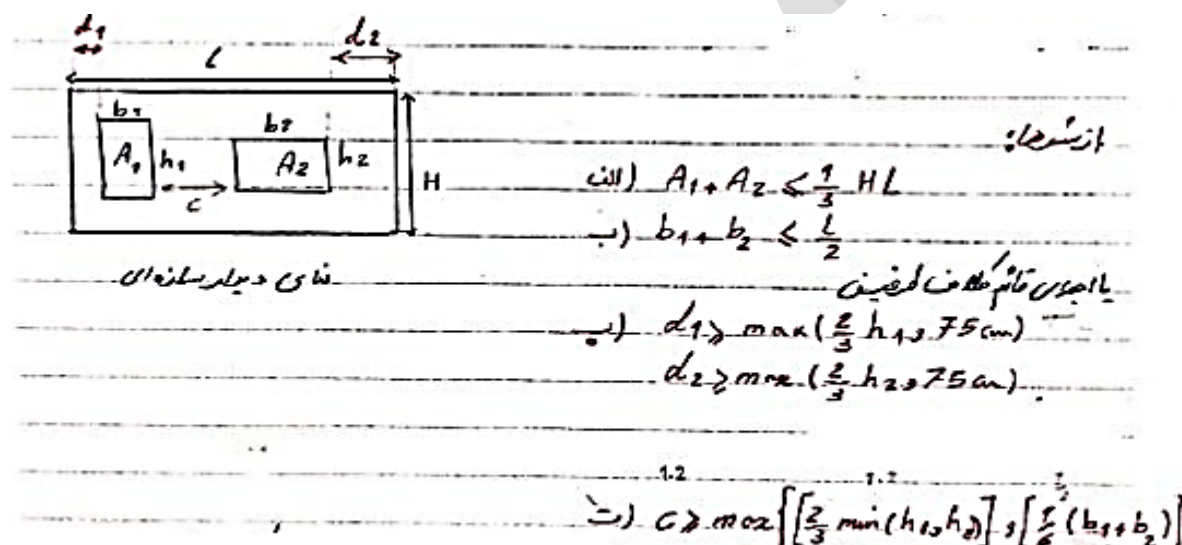 d1
L
d2
b1
b2
A1
h1
A2
h2
H
c
نمای دیوار سازه‌ای
بازشوها:
الف) A1+A2 ≤ 1/3 HL
ب) b1+b2 ≤ L/2
یا اجرای قائم کلاف طرفین
پ) d1 ≥ max(2/3 h1, 75cm)
d2 ≥ max(2/3 h2, 75cm)
1.2
ت) c ≥ max{[2/3 min(h1,h2)], [1/6 (b1+b2)]